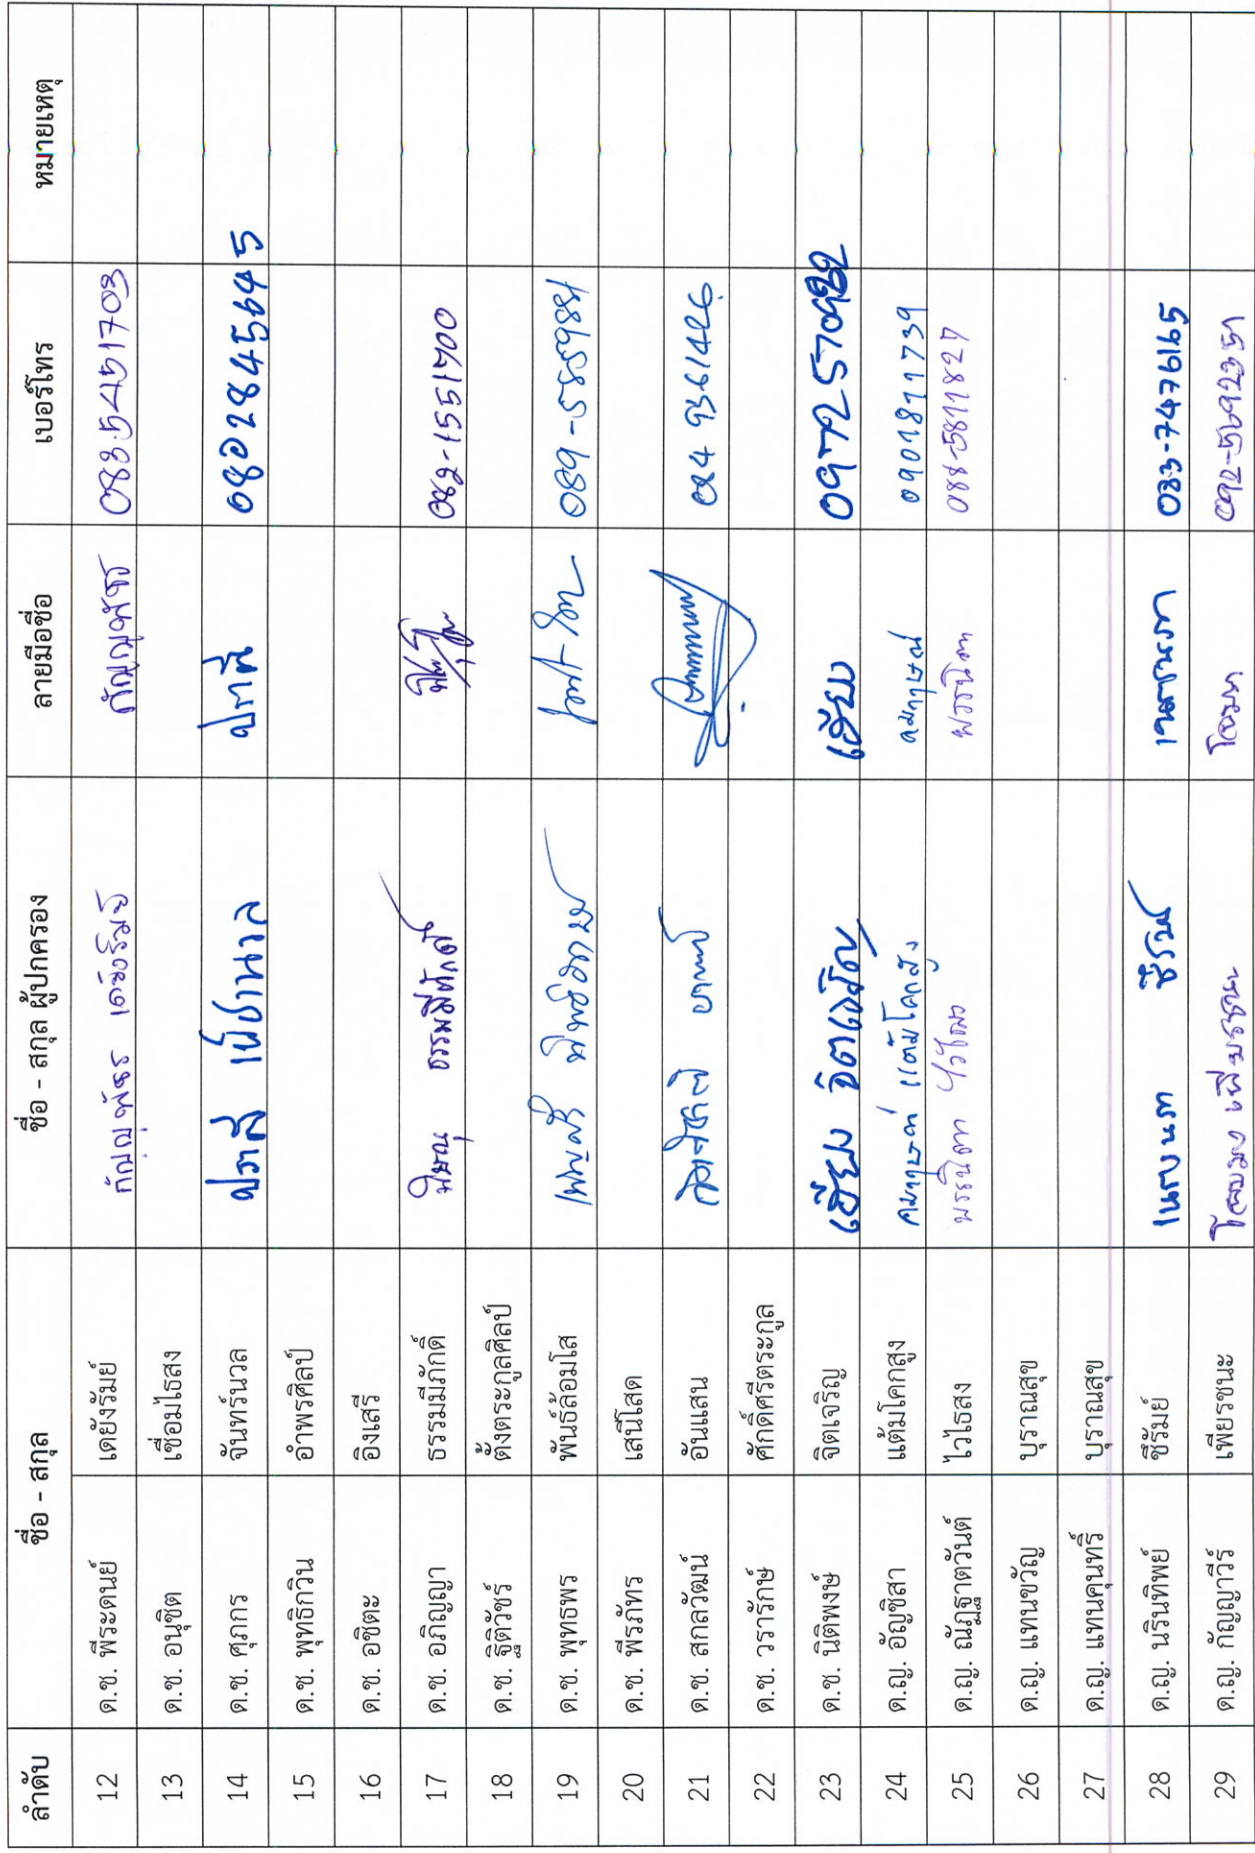 ลำดับ ชื่อ - สกุล ชื่อ - สกุล ผู้ปกครอง ลายมือชื่อ เบอร์โทร หมายเหตุ
12 ด.ช. พีระดนย์ เดยังรัมย์ กัญญพัชร เดยังรัมย์ กัญญพัชร 0835451703
13 ด.ช. อนุชิต เชื่อมไธสง
14 ด.ช. ศุภกร จันทร์นวล ปราณี ปราณี 0802845645
15 ด.ช. พุทธิกวิน อำพรศิลป์
16 ด.ช. อชิตะ อิงเสรี
17 ด.ช. อภิญญา ธรรมมีภักดิ์ พิษณุ ธรรมมีภักดิ์ 082-1551700
18 ด.ช. ฐิติวัชร์ ตั้งตระกูลศิลป์
19 ด.ช. พุทธพร พันธ์ล้อมโส เพ็ญศรี 089-5855984
20 ด.ช. พีรภัทร เสนีโสด
21 ด.ช. สกลวัฒน์ อันแสน 084 9361426
22 ด.ช. วรารักษ์ ศักดิ์ศรีตระกูล
23 ด.ช. นิติพงษ์ จิตเจริญ เอียม จิตเจริญ เอียม 0972570982
24 ด.ญ. อัญชิสา แต้มโคกสูง คมกฤษณ์ แต้มโคกสูง คมกฤษณ์ 0901811739
25 ด.ญ. ณัฏฐาตวันต์ ไวไธสง พรรนิดา พรรนิดา 088-5811827
26 ด.ญ. แทนขวัญ บุราณสุข
27 ด.ญ. แทนคุนทร์ บุราณสุข
28 ด.ญ. นรินทิพย์ ชีรัมย์ เนตรนภา ชีรัมย์ เนตรนภา 083-7476165
29 ด.ญ. กัญญาวีร์ เพียรชนะ เพียรชนะ 092-5692351